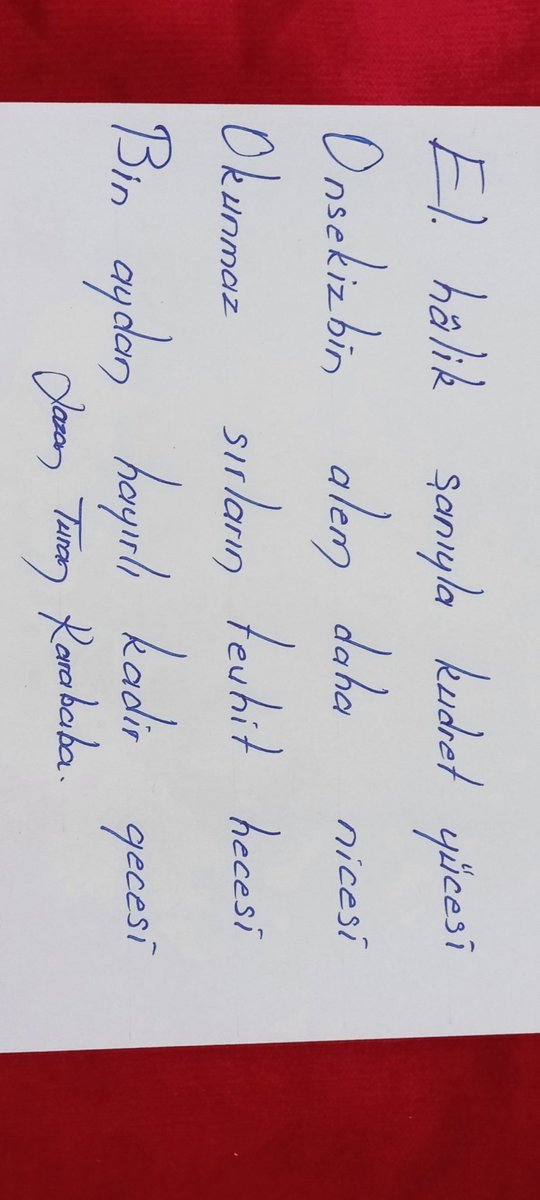 El. hâlik şanıyla kudret yücesi
Onsekizbin alem daha nicesi
Okunmaz sırların tevhit hecesi
Bin aydan hayırlı kadir gecesi
Yazan Turan Karababa.